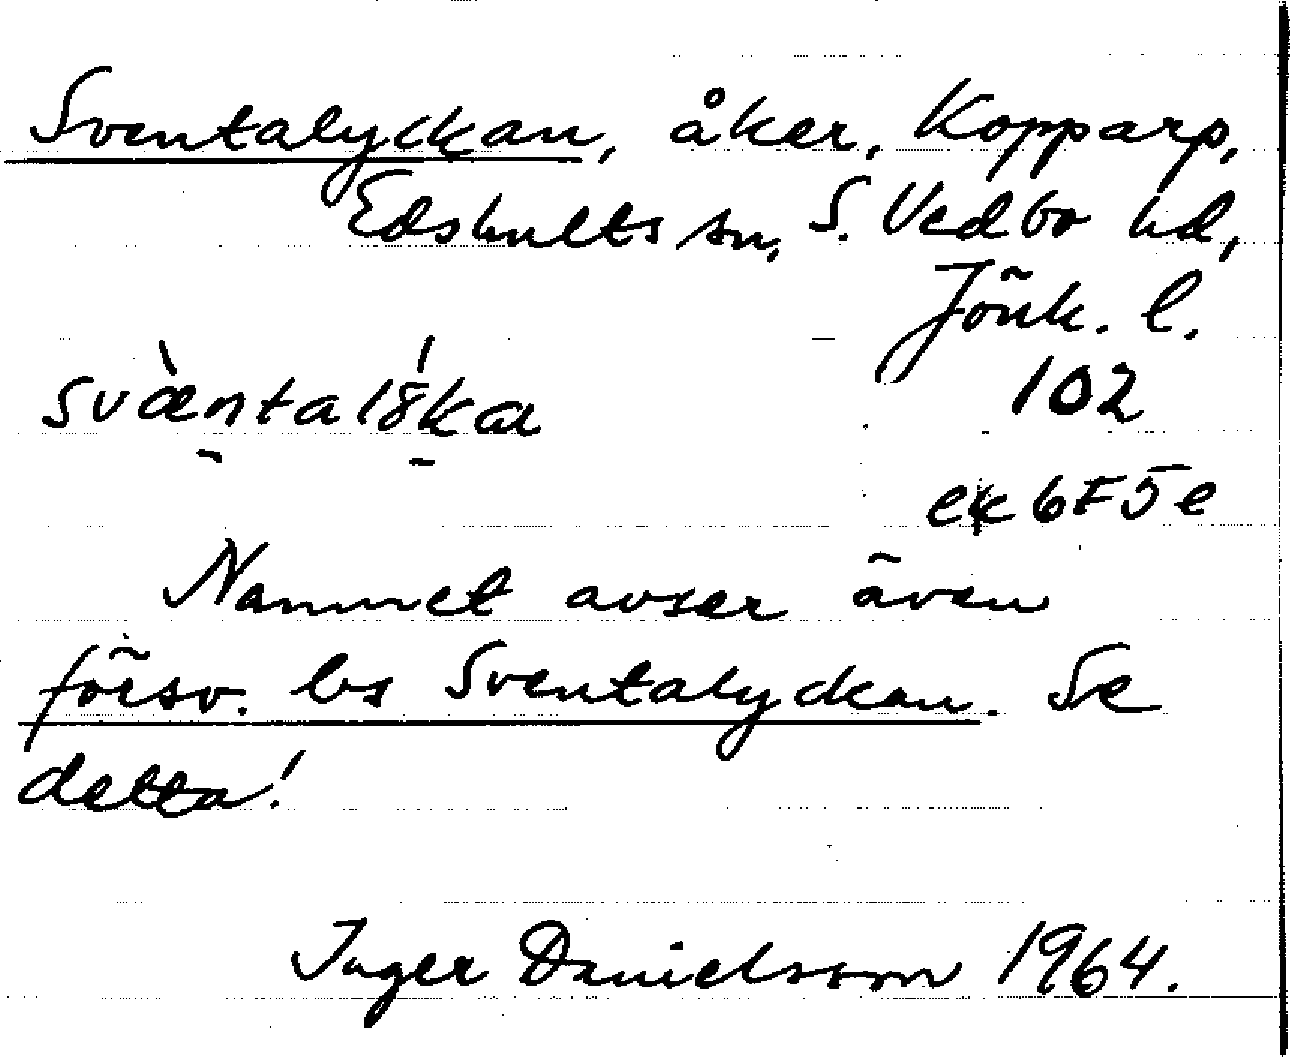 Sventalyckan, åker, Kopparp,
Edshults sn, S. Vedbo hd,
Jönk. l.
102
svæ̀ntalö́ka
ek 6F5e
Namnet avser även
försv. bs Sventalyckan. Se
detta!
Inger Danielsson 1964.